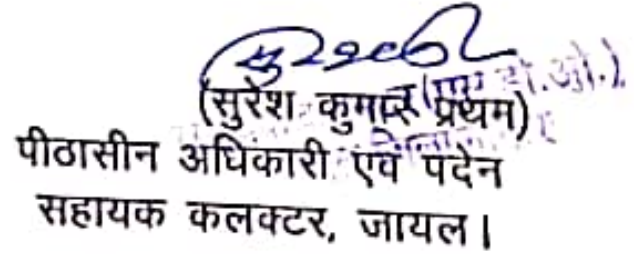 (सुरेश कुमार प्रथम)
पीठासीन अधिकारी एवं पदेन
सहायक कलक्टर, जायल।